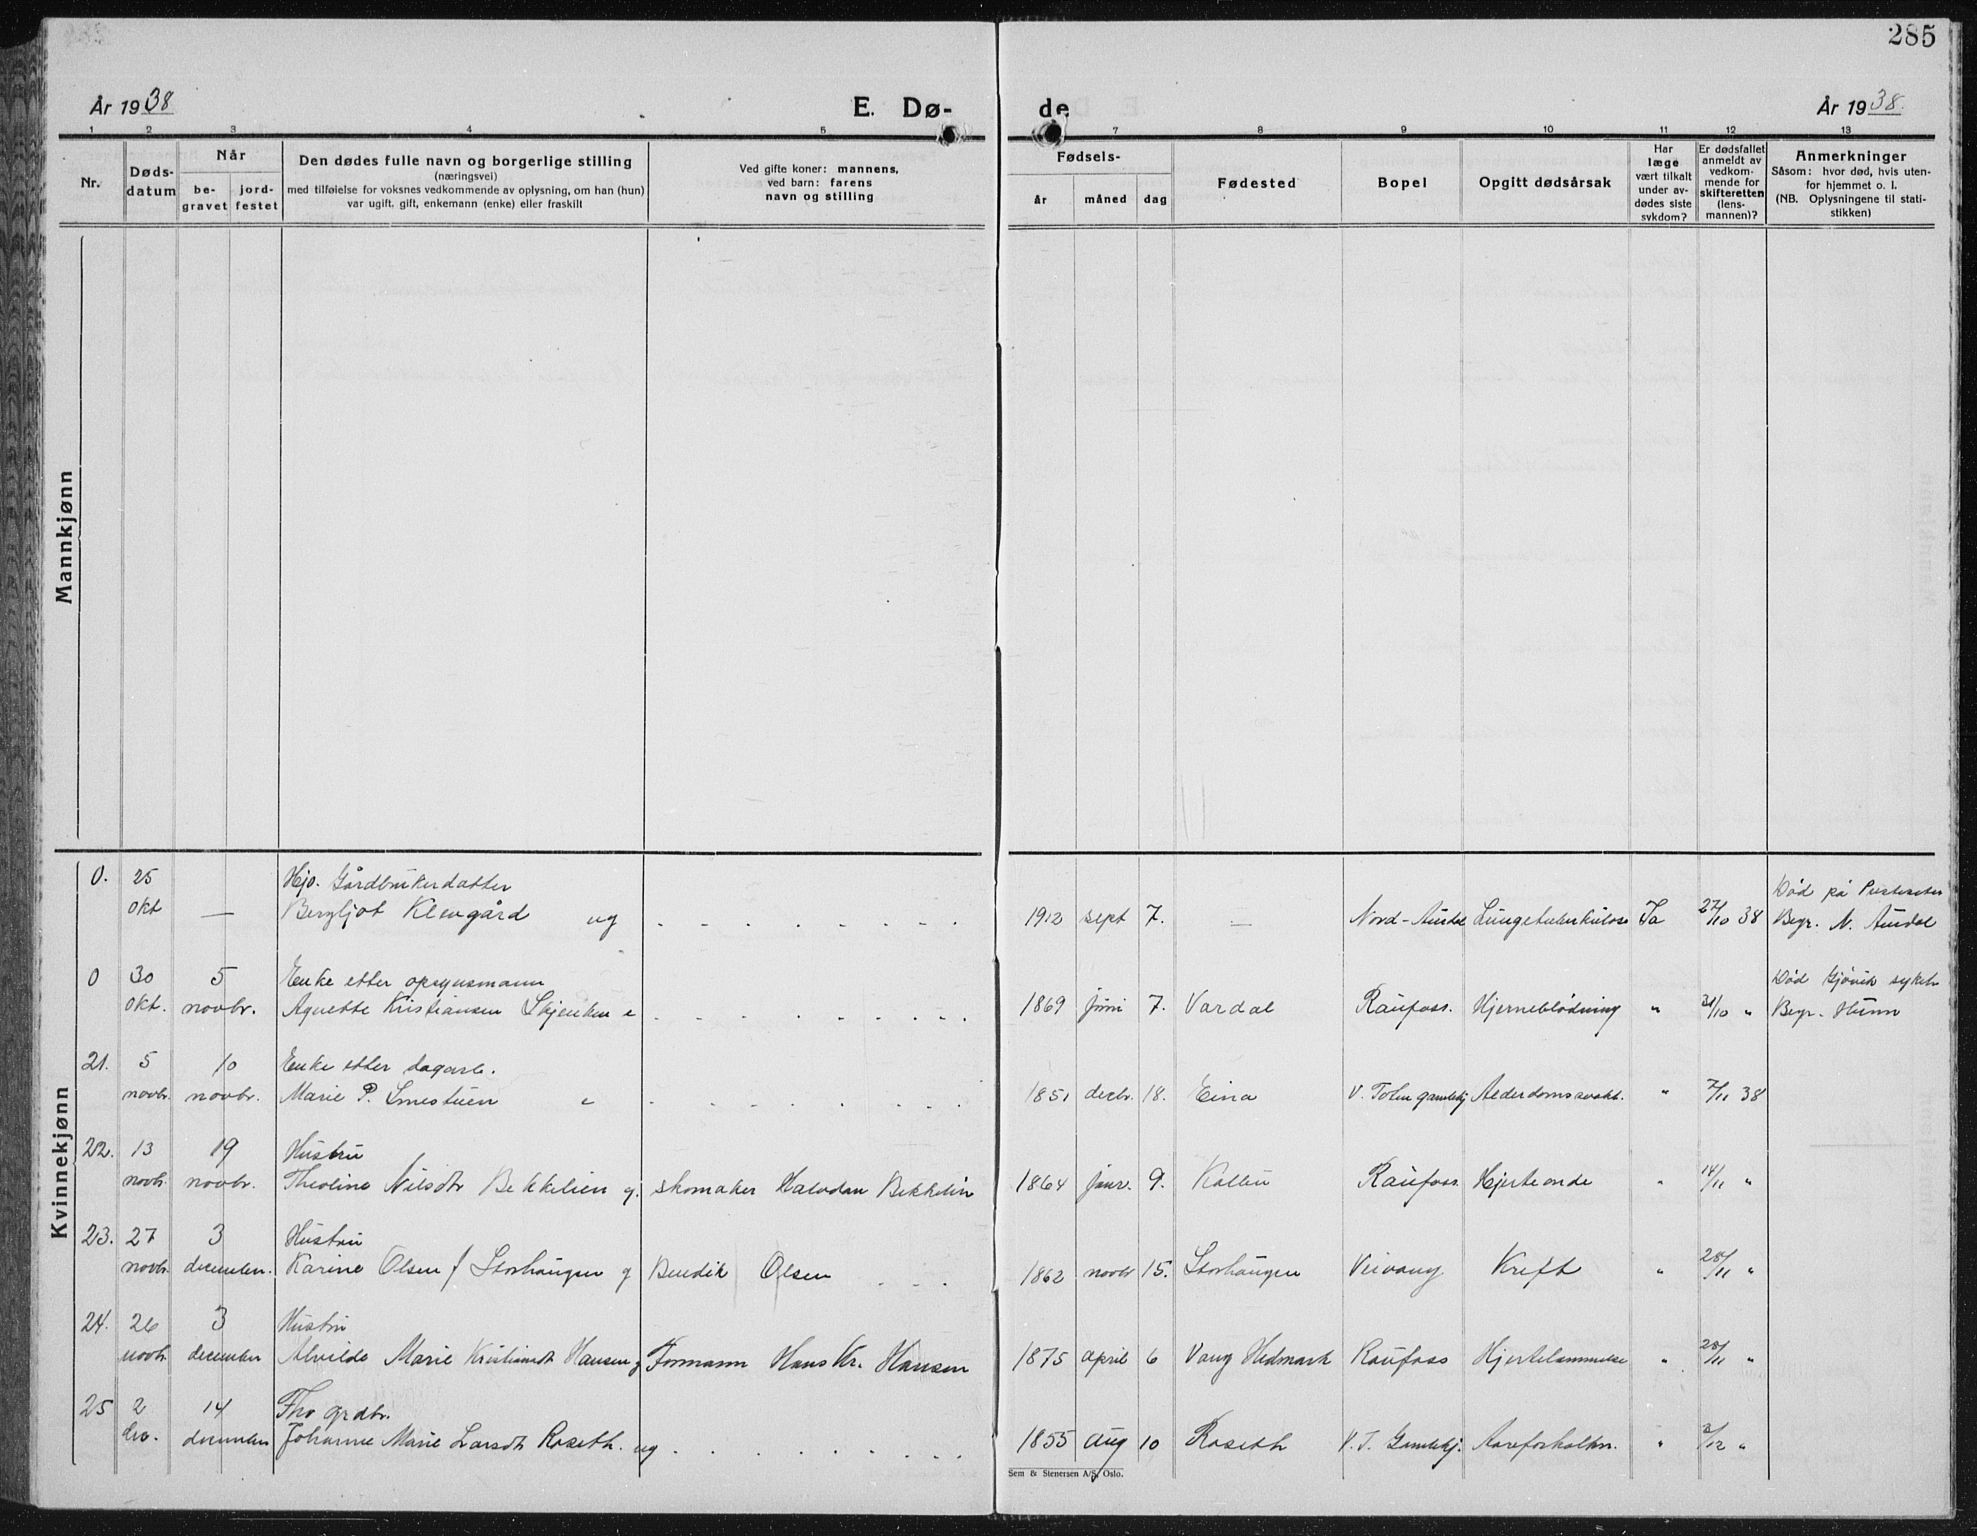 285
År 1938
E. Dø-
de
År 1938.
1 2 3 4 5 7 8 9 10 11 12 13
Nr.
Døds-
datum
Når
be-
gravet
jord-
festet
Den dødes fulle navn og borgerlige stilling
(næringsvei)
med tilføielse for voksnes vedkommende av oplysning, om han (hun)
var ugift, gift, enkemann (enke) eller fraskilt
Ved gifte koner: mannens,
ved barn: farens
navn og stilling
Fødsels-
år
måned
dag
Fødested
Bopel
Opgitt dødsårsak
Har
læge
vært tilkalt
under av-
dødes siste
sykdom?
Er dødsfallet
anmeldt av
vedkom-
mende for
skifteretten
(lens-
mannen)?
Anmerkninger
Såsom: hvor død, hvis uten-
for hjemmet o. l.
(NB. Oplysningene til stati-
stikken)
Mannkjønn
Kvinnekjønn
0. 25 Hjp. Gårdbrukerdatter Død på
okt — Bergljot Klevgård ug 1912 sept 7. — Nord-Aurdal Lungetuberkulose Ja 27/10 38 Begr. N. Aurdal
0 30 5 Enke etter opsynsmann Død Gjøvik sykeh
okt. novbr. Agnette Kristiansen Skjenken e 1869 juni 7. Vardal Raufoss. Hjerneblødning " 31/10 " Begr. Hunn
21. 5 10 Enke etter dagarb.
novbr. novbr. Marie P. Smestuen e 1851 decbr. 18. Eina V. Toten gamlehj Alderdomssvakh. " 7/11 38
22. 13 19 Hustru
novbr. novbr. Theoline Nilsdtr Bekkelien g. skomaker Halvdan Bekkelin 1864 janr. 9. Kolbu Raufoss. Hjerteonde " 14/11 "
23. 27 3 Hustru
novbr. december. Karine Olsen f Storhaugen g Bendik Olsen 1862 novbr 15. Storhaugen Veivang Kreft " 28/11 "
24. 26 3 Hustru
novbr december Alvilde Marie Kristiansdt Hansen g Formann Hans Kr. Hansen 1875 april 6 Vang Hedmark Raufoss Hjertelammelse " 28/11 "
25 2 14 Fhv grdbr.
december Johanne Marie Larsdt Roseth. ug 1855 aug 10 Roseth V. T. Gamlehj. Aareforkalkn. " 3/12 "
Sem & Stenersen A/S, Oslo.